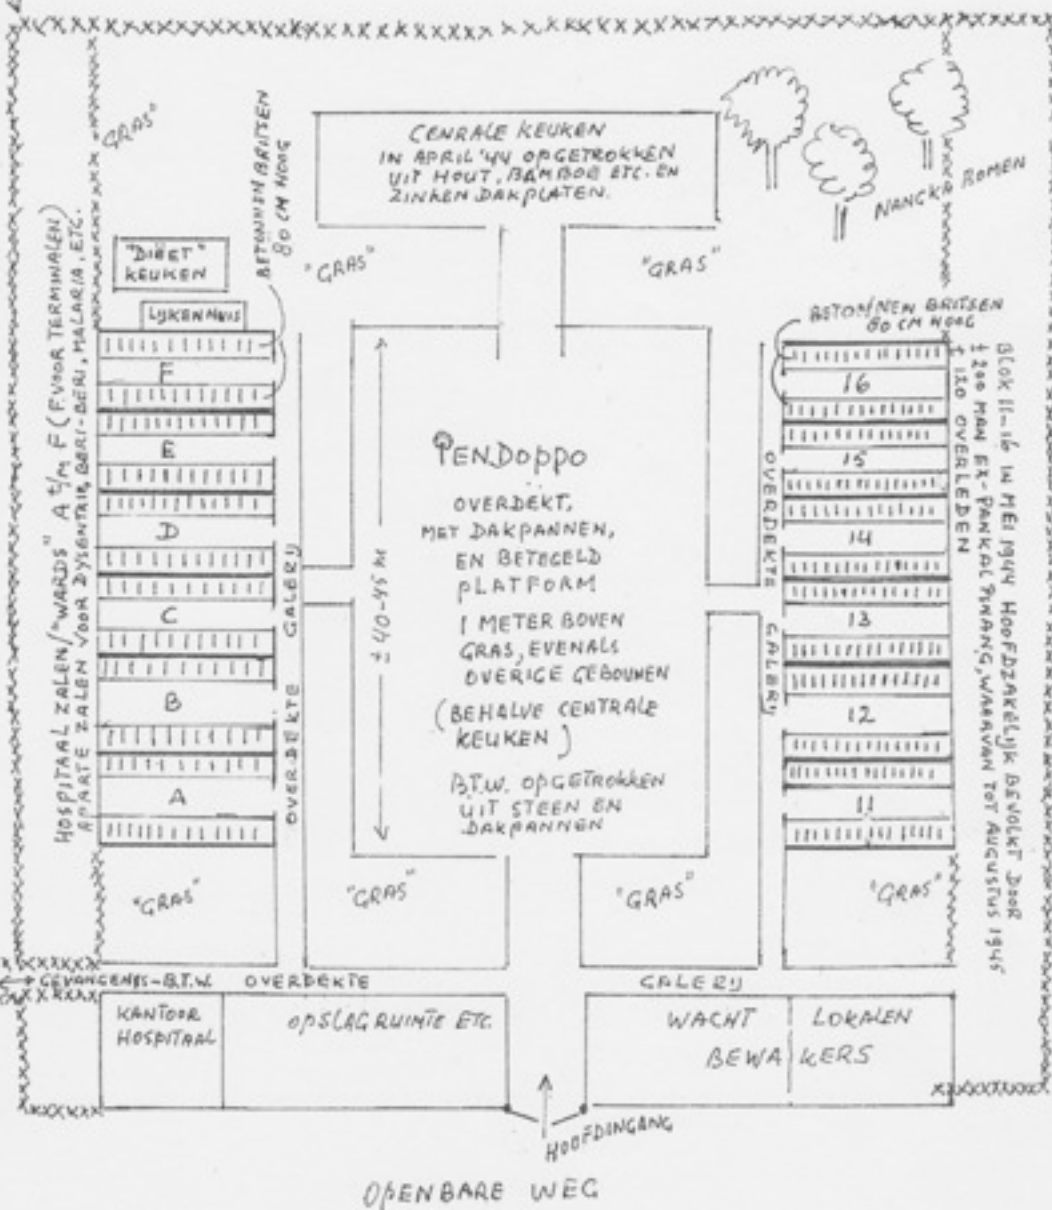 "GRAS"
BETONNEN BRITSEN
80 CM HOOG
CENRALE KEUKEN
IN APRIL '44 OPGETROKKEN
UIT HOUT, BAMBOE ETC. EN
ZINKEN DAKPLATEN.
NANGKA BOMEN
"DIËET"
KEUKEN
LIJKENHUIS
"GRAS"
"GRAS"
BETONNEN BRITSEN
80 CM HOOG
HOSPITAAL ZALEN/"WARDS" A t/m F (F. VOOR TERMINALEN)
APARTE ZALEN VOOR DYSENTRIE, BERI-BERI, MALARIA, ETC.
F
E
D
C
B
A
OVERDEKTE GALERIJ
± 40-45 M
PENDOPPO
OVERDEKT,
MET DAKPANNEN,
EN BETEGELD
PLATFORM
1 METER BOVEN
GRAS, EVENALS
OVERIGE GEBOUWEN
(BEHALVE CENTRALE
KEUKEN)
B.T.W. OPGETROKKEN
UIT STEEN EN
DAKPANNEN
OVERDEKTE GALERIJ
16
15
14
13
12
11
BLOK 11-16 IN MEI 1944 HOOFDZAKELIJK BEVOLKT DOOR
± 200 MAN EX-PANKAL PINANG, WAARVAN TOT AUGUSTUS 1945
± 120 OVERLEDEN
"GRAS"
"GRAS"
"GRAS"
"GRAS"
GEVANGENIS-B.T.W. OVERDEKTE GALERIJ
KANTOOR
HOSPITAAL
OPSLAGRUIMTE ETC.
WACHT LOKALEN
BEWAKERS
HOOFDINGANG
OPENBARE WEG